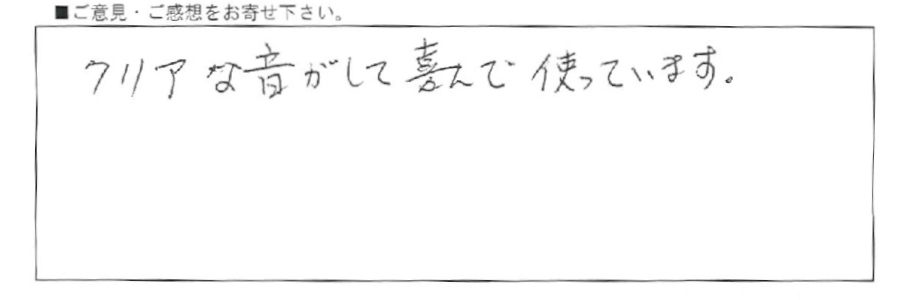 ■ご意見・ご感想をお寄せ下さい。
クリアな音がして喜んで使っています。